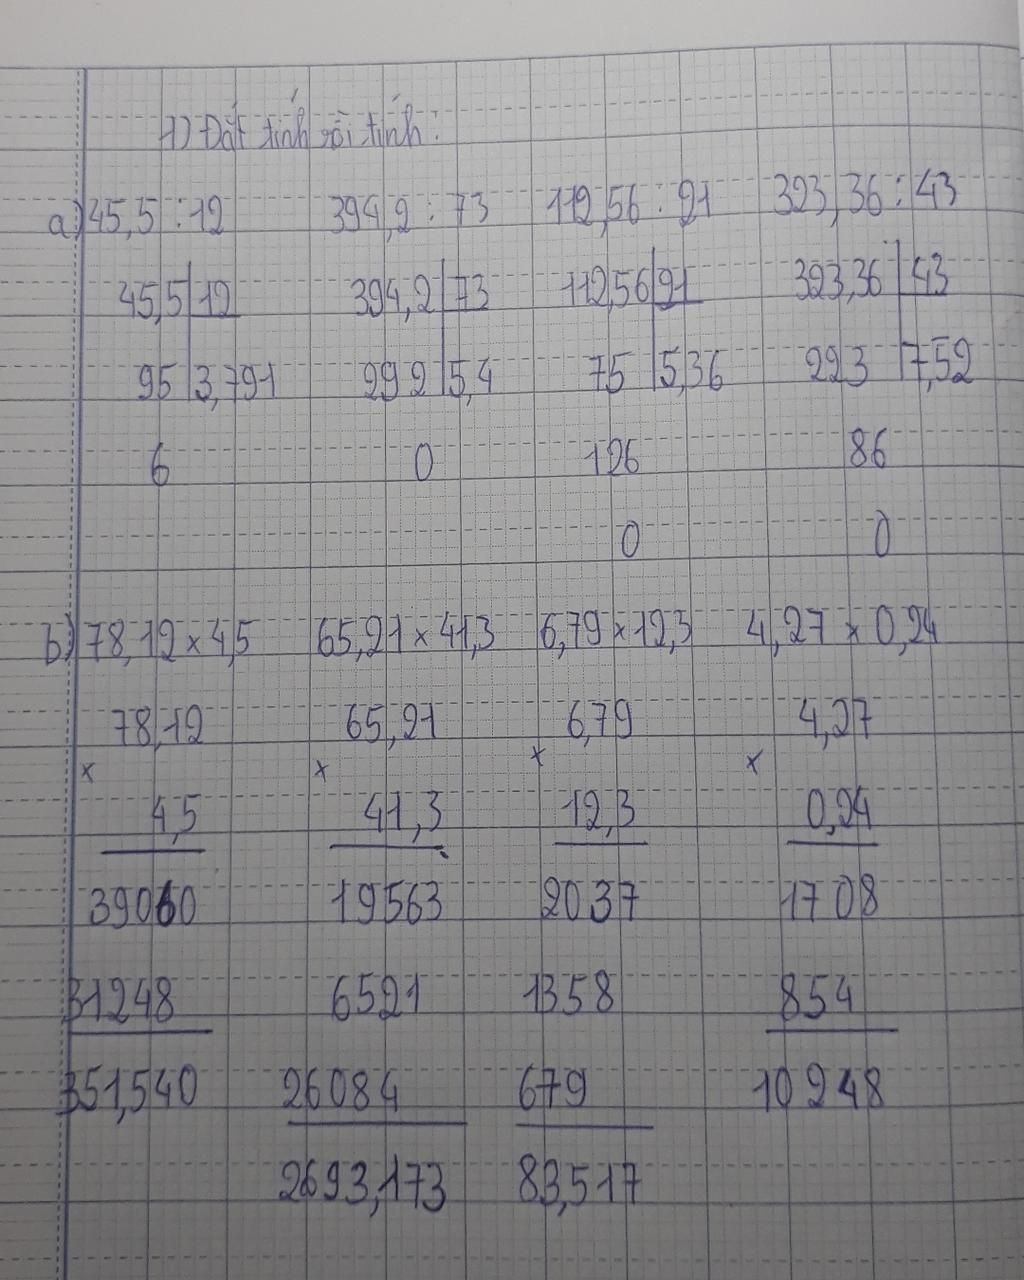 1) Đặt tính rồi tính:
a) 45,5 : 12 394,2 : 73 112,56 : 21 323,36 : 43
45,5 12 394,2 73 112,56 21 323,36 43
95 3,791 292 5,4 75 5,36 223 7,52
6 0 126 86
0 0
b) 78,12 x 4,5 65,21 x 41,3 6,79 x 12,3 4,27 x 0,24
78,12 65,21 6,79 4,27
x x x x
4,5 41,3 12,3 0,24
39060 19563 2037 1708
31248 6521 1358 854
351,540 26084 679 10248
2693,173 83,517